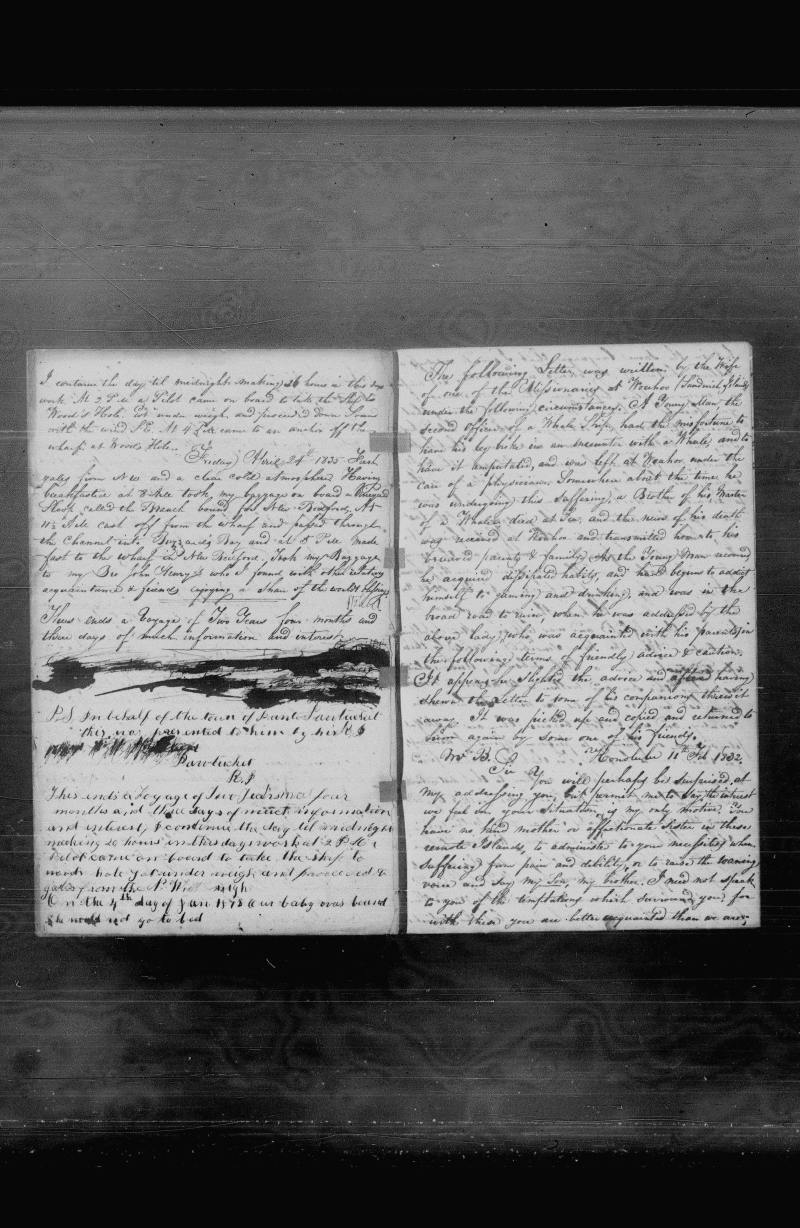 I continue the day til midnight making 36 hours in this days
work At 2 P.M. a Pilot came on board to take the Ship to
Wood's Hole. Got under weigh and proceed'd down Sound
with the wind S.E. At 4 P.M. came to an anchor off the
wharf at Wood's Hole.
Friday April 24th 1835 Fresh
gales from N.W. and a clear cold atmosphere Having
breakfasted at took my baggage on board a Vineyard
Sloop called the bound for New Bedford, At
11½ A.M. cast off from the wharf and passed through
the Channel into Buzzards Bay and at 3 P.M. made
fast to the wharf in New Bedford. Took my Baggage
to my Bro John Henry's who I found with other relatives
acquaintance & friends enjoying a share of the worlds blessings
Thus ends a Voyage of Two Years four months and
three days of much information and interest
P.S. In behalf of the town of
this was presented to him by his
Pawtucket
R.I
This ends a Voyage of Two Years four
months and three days of much information
and interest, I continue the day til midnight
making 20 hours in this days work at 2 P.M. a
pilot came on board to take the ship to
woods hole got under weigh and proceeded
gales from the N West weigh
On the 4th day of Jan 1878 Our baby was bound
she would not go to bed
The following Letter was written by the Wife
of one of the Missionarys at Woahoo (Sandwich Islands)
under the following circumstances. A Young Man, the
second Officer of a Whale Ship, had the misfortune to
have his leg broke in an encounter with a Whale, and to
have it amputated, and was left at Woahoo under the
care of a physician. Somewhere about the time he
was undergoing this suffering, a Brother of his, Master
of a Whaler died at Sea, and the news of his death
was received at Woahoo and transmitted home to his
bereaved parents & family. As the Young Man recovered
he acquired dissipated habits, and had begun to addict
himself to gaming and drinking, and was in the
broad road to ruin, when he was addressed by the
above lady, who was acquainted with his parents, in
the following terms of friendly advice & caution.
It appears he slighted the advice and after having
shewn the Letter to some of his companions threw it
away. It was picked up and copied and returned to
him again by some one of his friends.
Mr B. Honolulu 11th Feb 1832.
Sir
You will perhaps be surprised at
my addressing you, but permit me to say the interest
we feel in your situation, is my only motive. You
have no kind mother or affectionate Sister in these
remote Islands, to administer to your necessities when
suffering from pain and debility, or to raise the warning
voice and say my Son, my brother. I need not speak
to you of the temptations which surround you, for
with them you are better acquainted than we are,